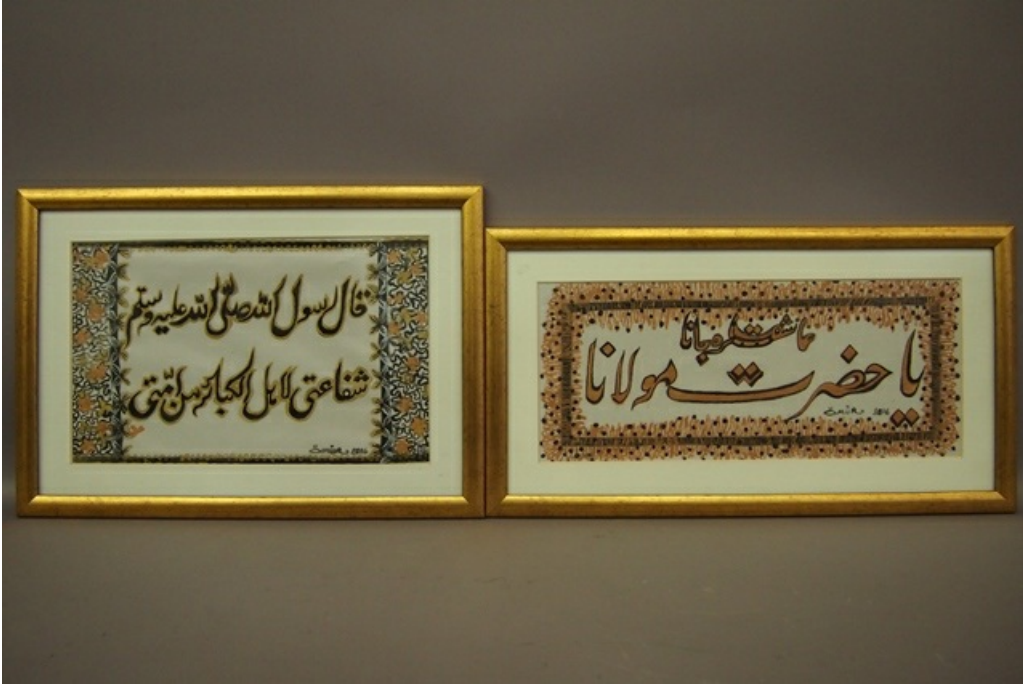 قال رسول الله صلى الله عليه وسلم
شفاعتي لاهل الكبائر من امتي
2016
يا حضرت مولانا
2016